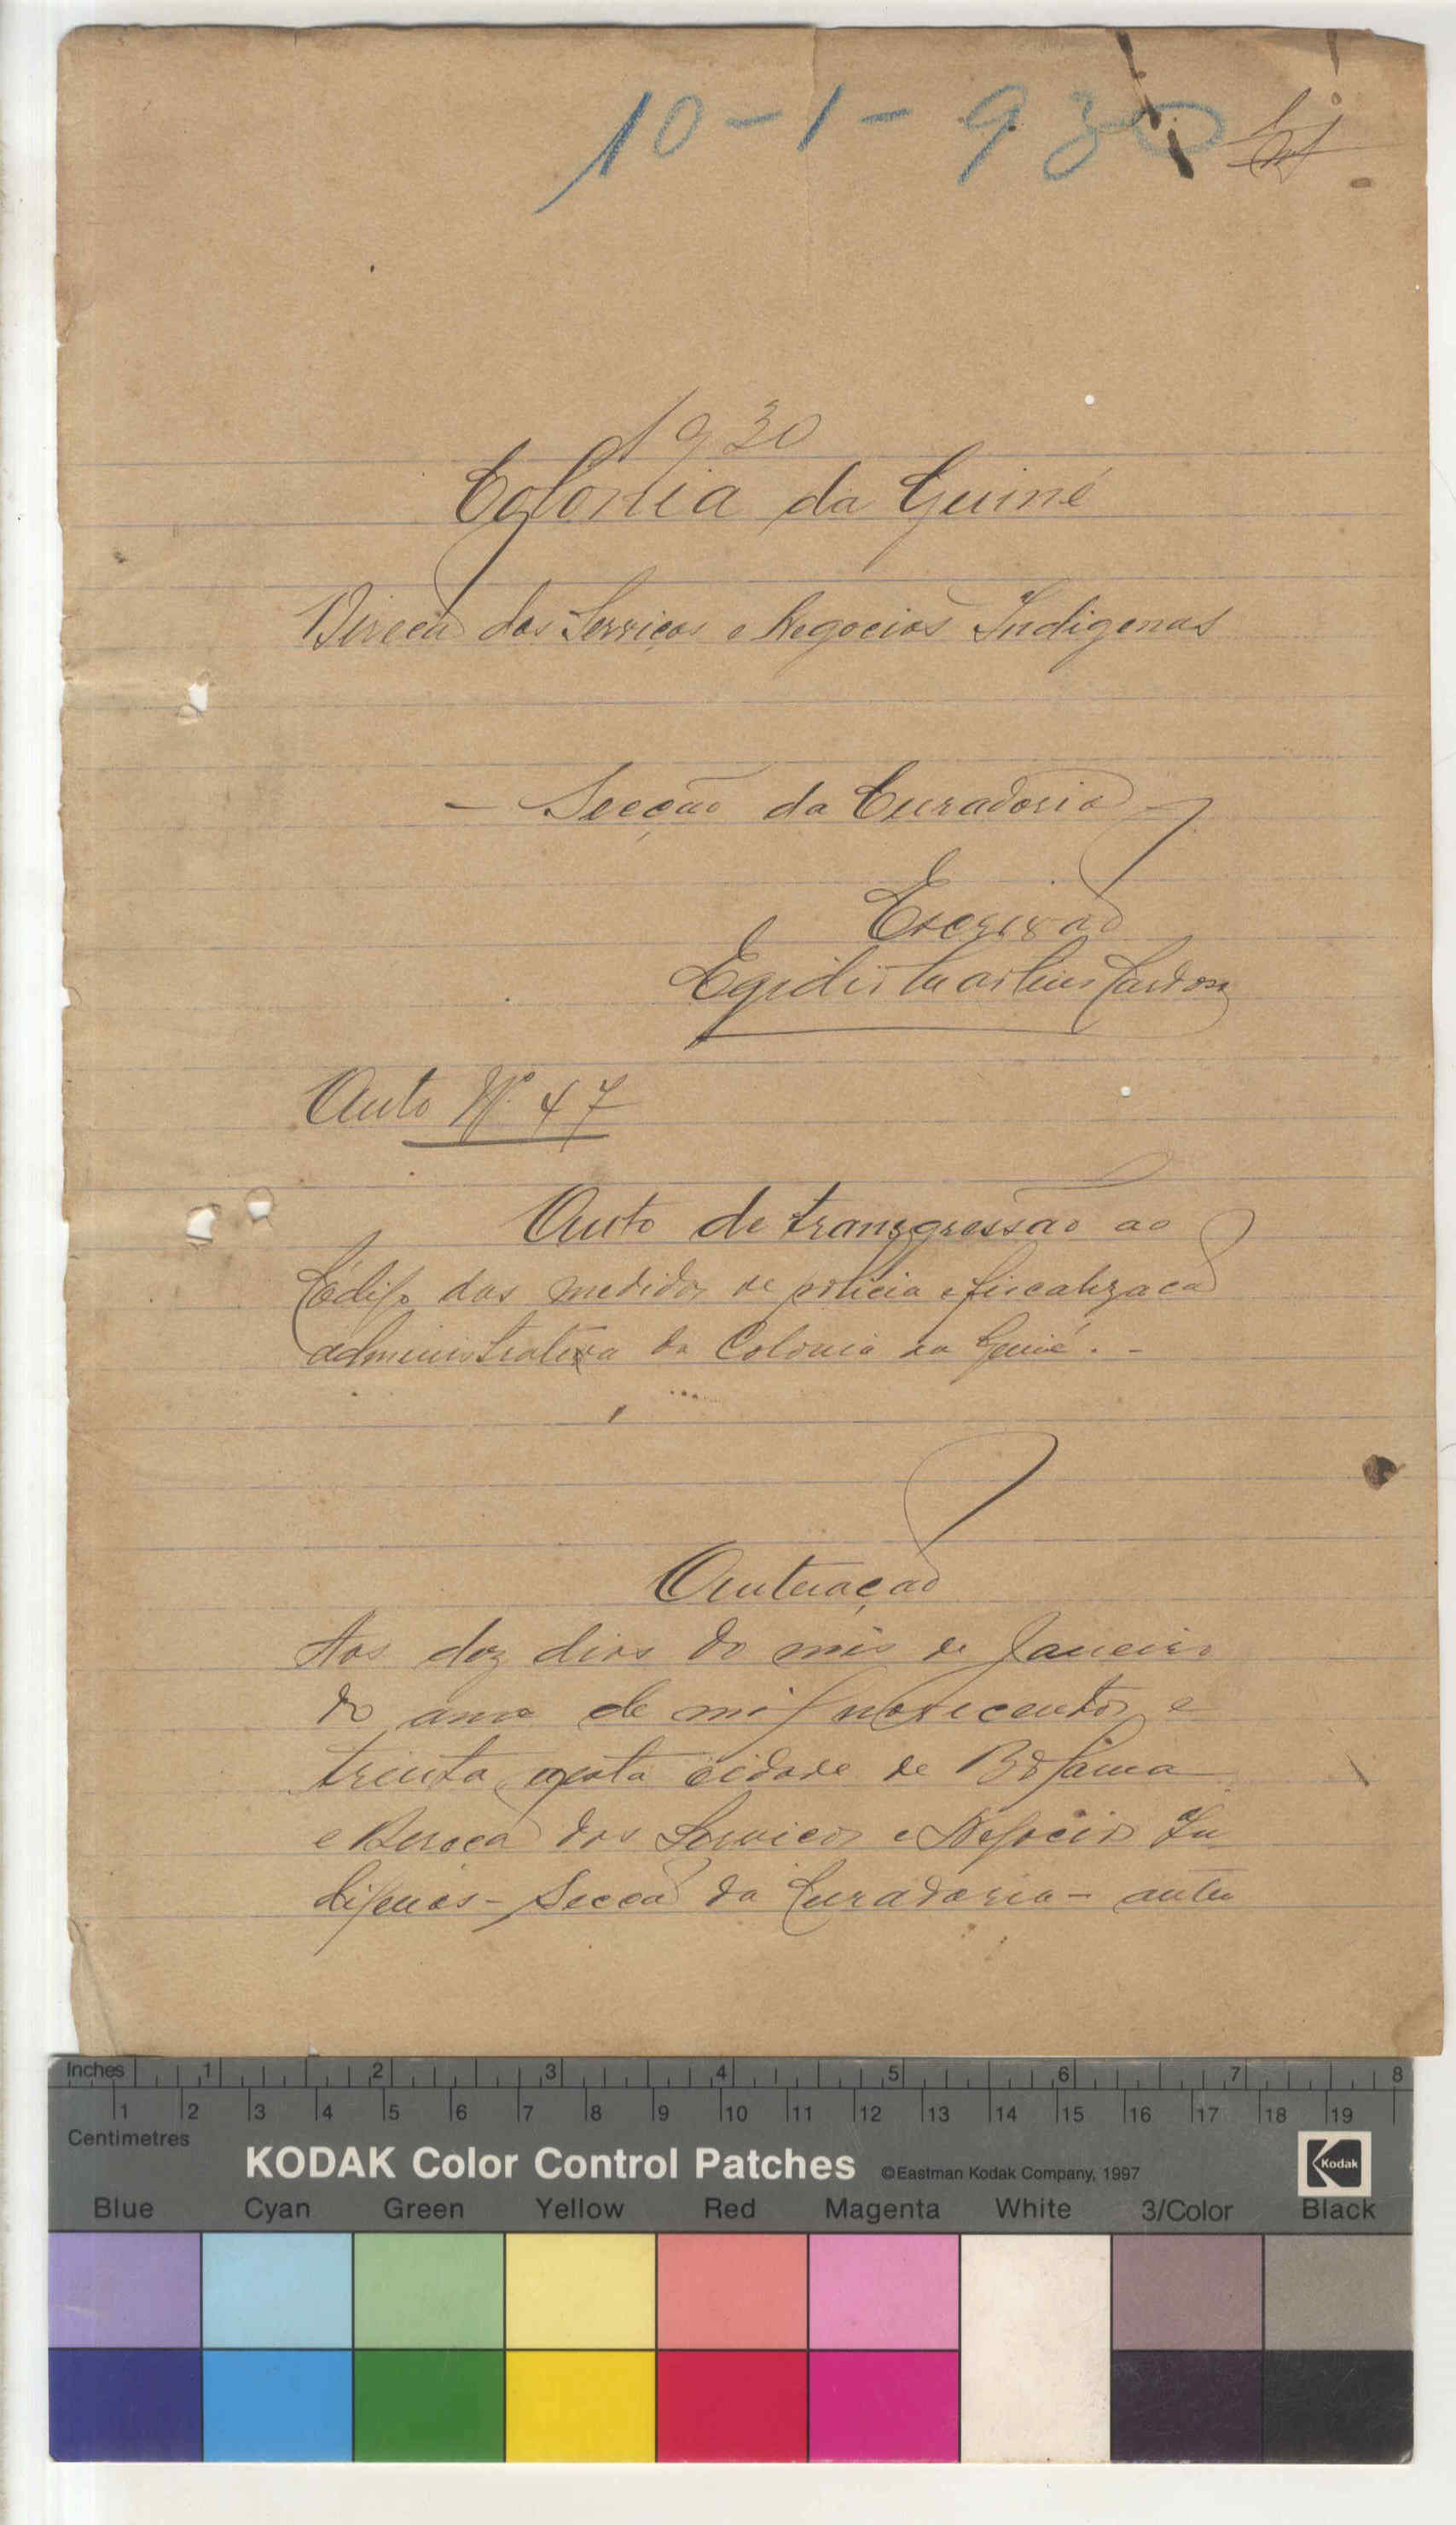 10-1-930
1930
Colonia da Guiné
Direcção dos Serviços e Negocios Indigenas
- Secção da Curadoria -
Escrivão
Egidio Martins Cardoso
Auto Nº 47
Auto de transgressão ao
Código das medidas de policia e fiscalização
administrativa da Colonia da Guiné. -
Autuação
Aos dez dias do mês de Janeiro
do ano de mil novecentos e
trinta, nesta cidade de Bolama
e Direcção dos Serviços e Negocios In
digenas - Secção da Curadoria - autu
Inches 1 2 3 4 5 6 7 8
1 2 3 4 5 6 7 8 9 10 11 12 13 14 15 16 17 18 19
Centimetres
KODAK Color Control Patches ©Eastman Kodak Company, 1997 Kodak
Blue Cyan Green Yellow Red Magenta White 3/Color Black